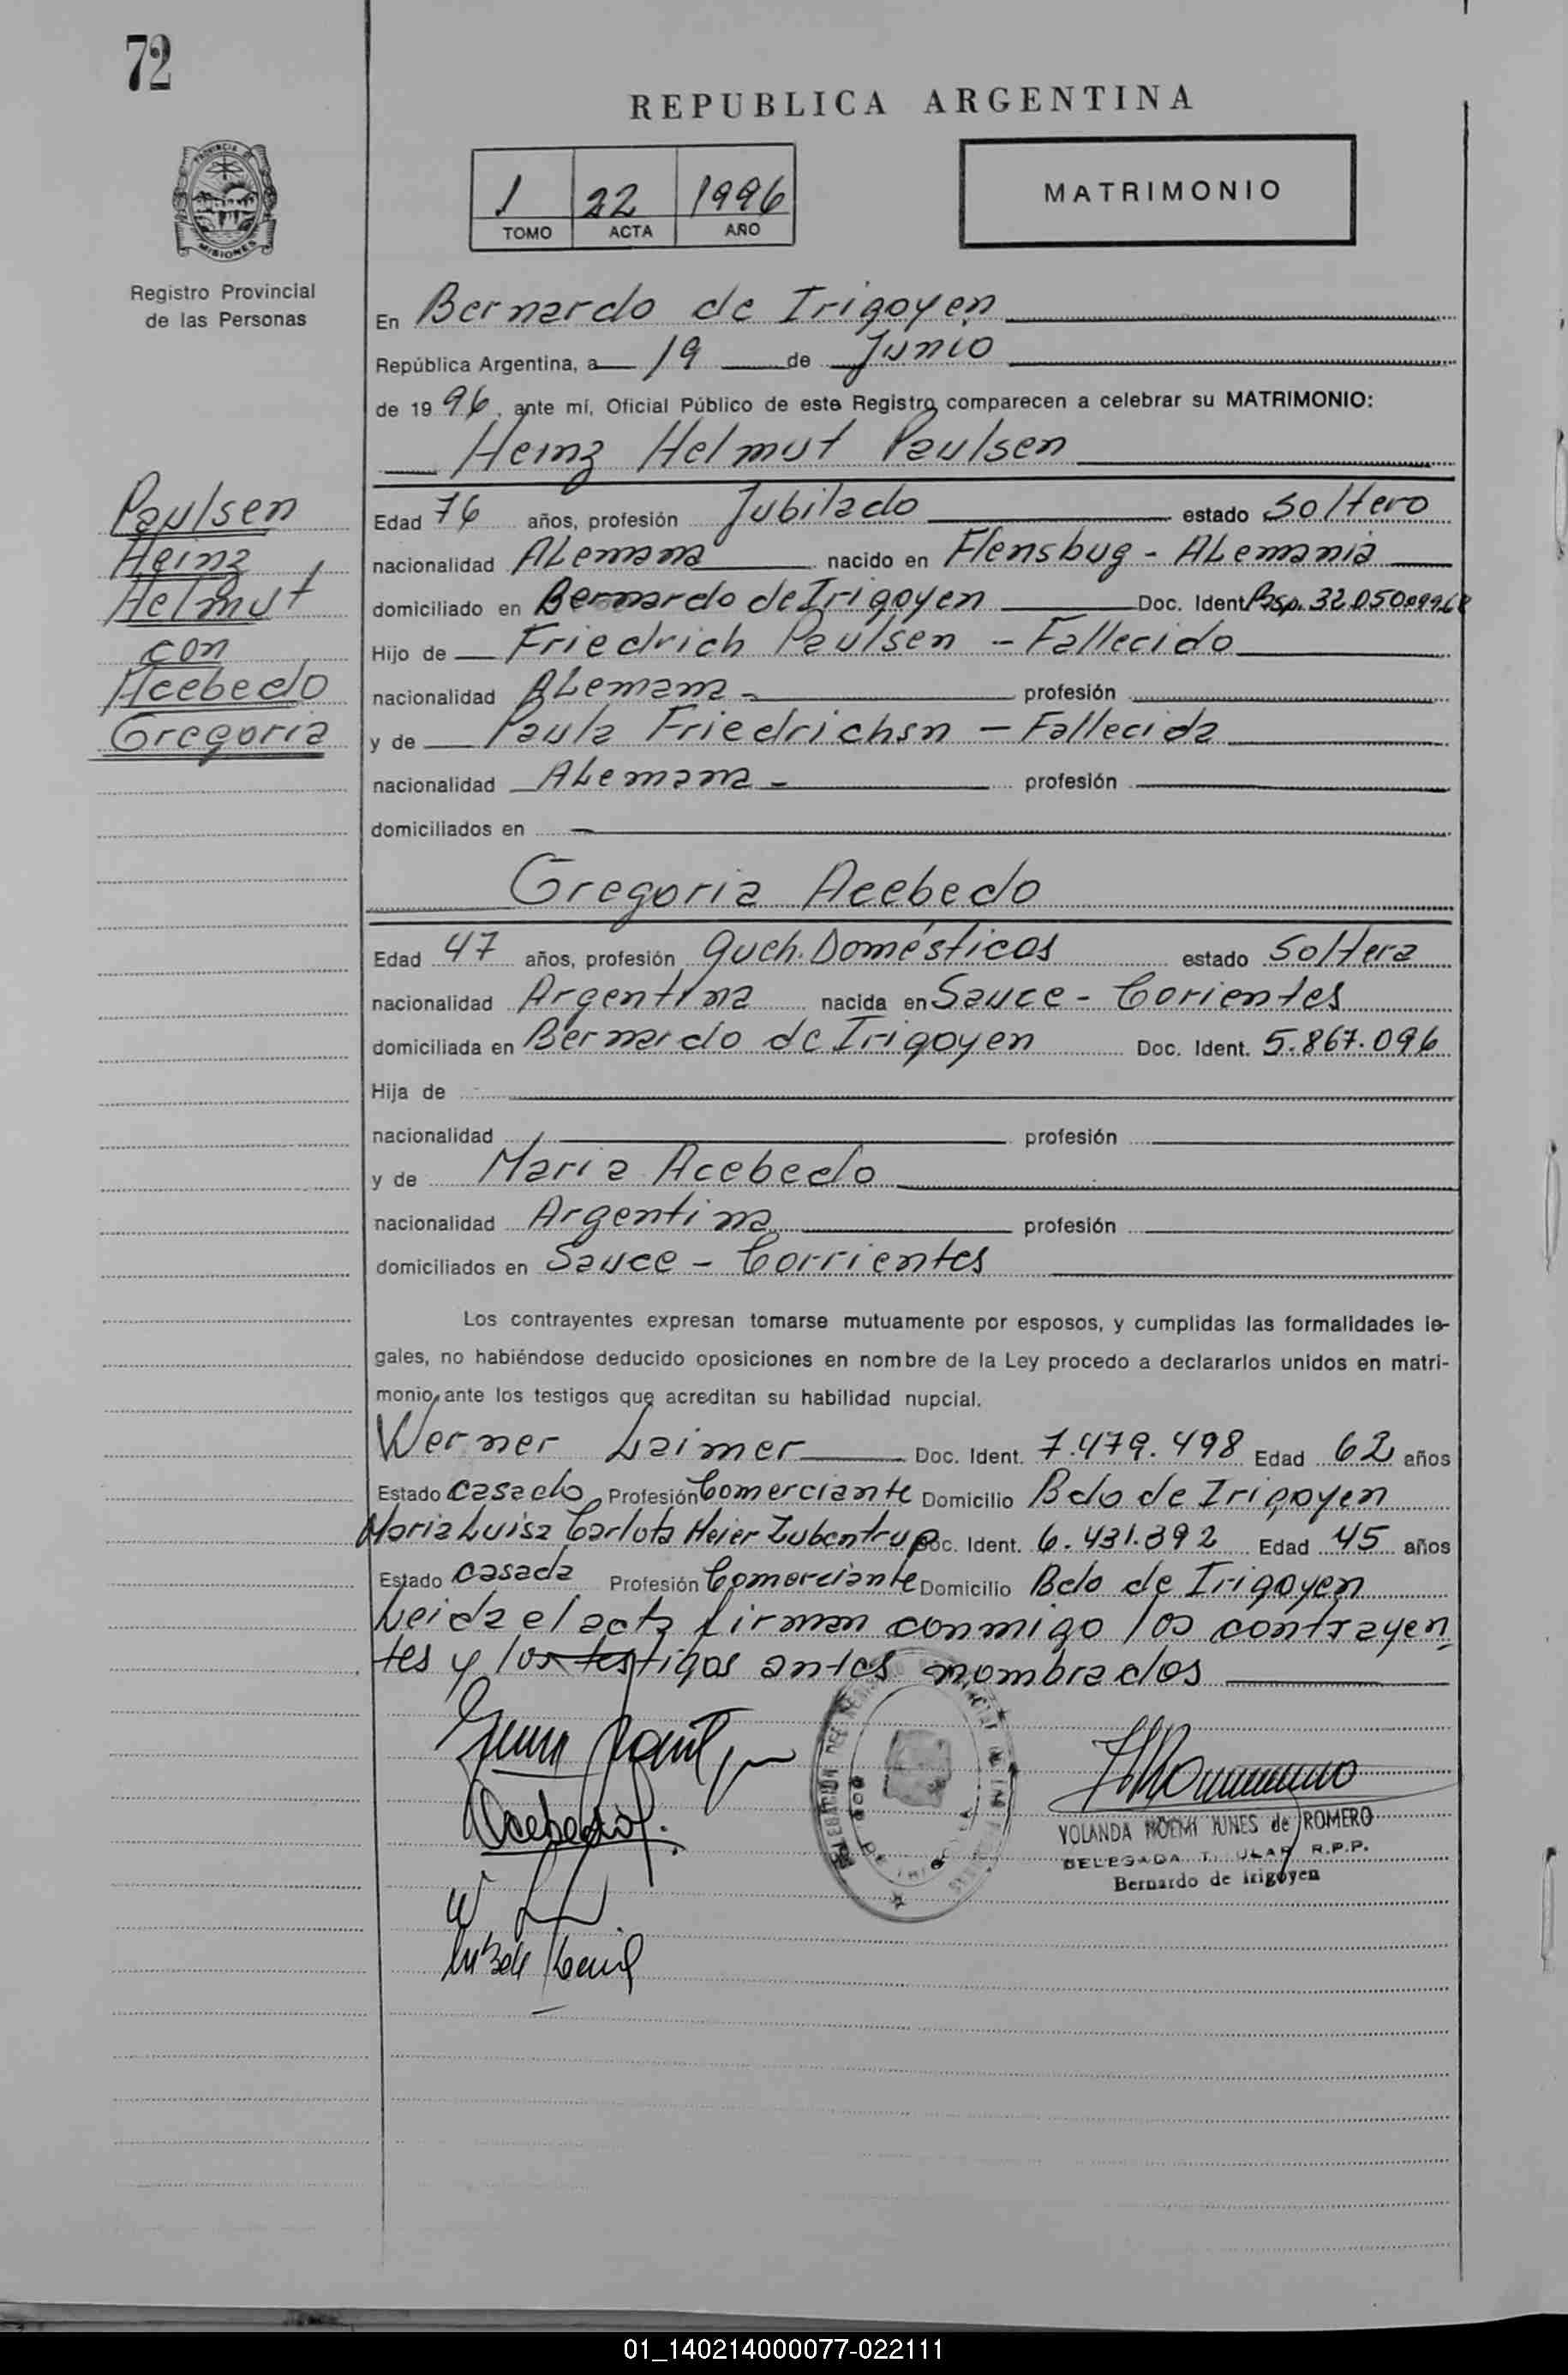 72
REPUBLICA ARGENTINA
PROVINCIA DE
MISIONES
1 22 1996
TOMO ACTA AÑO
MATRIMONIO
Registro Provincial
de las Personas
En Bernardo de Irigoyen
República Argentina, a 19 de Junio
de 19 96, ante mí, Oficial Público de este Registro, comparecen a celebrar su MATRIMONIO:
Heinz Helmut Paulsen
Paulsen
Heinz
Helmut
con
Acebedo
Gregoria
Edad 76 años, profesión Jubilado estado Soltero
nacionalidad ALemana nacido en Flensbug - ALemania
domiciliado en Bernardo de Irigoyen Doc. Ident. Pasp.
Hijo de Friedrich Paulsen - Fallecido
nacionalidad ALemana - profesión
y de Paula Friedrichsn - Fallecida
nacionalidad ALemana - profesión
domiciliados en
Gregoria Acebedo
Edad 47 años, profesión Queh. Domésticos estado Soltera
nacionalidad Argentina nacida en Sauce - Corientes
domiciliada en Bernardo de Irigoyen Doc. Ident. 5.867.096
Hija de
nacionalidad profesión
y de Maria Acebedo
nacionalidad Argentina profesión
domiciliados en Sauce - Corrientes
Los contrayentes expresan tomarse mutuamente por esposos, y cumplidas las formalidades le-
gales, no habiéndose deducido oposiciones en nombre de la Ley procedo a declararlos unidos en matri-
monio, ante los testigos que acreditan su habilidad nupcial.
Werner Laimer Doc. Ident. 7.479.498 Edad 62 años
Estado Casado Profesión Comerciante Domicilio Bdo de Irigoyen
Maria Luisa Carlota Meier Lubentrup Doc. Ident. 6.431.392 Edad 45 años
Estado Casada Profesión Comerciante Domicilio Bdo de Irigoyen
Leida el acta firman conmigo los contrayen-
tes y los testigos antes nombrados
Acebedo
YOLANDA NOEMI JUNES de ROMERO
DELEGADA TITULAR R.P.P.
Bernardo de Irigoyen
01_140214000077-022111